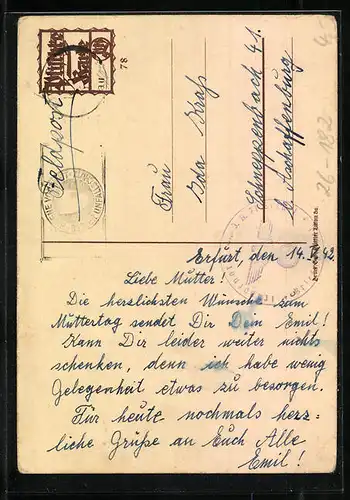 Feldpost
78
Frau
Ida Kraß
Schneppenbach 41.
b. Aschaffenburg
26-182
Erfurt, den 14. 42
Liebe Mutter!
Die herzlichsten Wünsche zum
Muttertag sendet Dir Dein Emil!
Kann Dir leider weiter nichts
schenken, denn ich habe wenig
Gelegenheit etwas zu besorgen.
Für heute nochmals herz=
liche Grüße an Euch Alle
Emil!